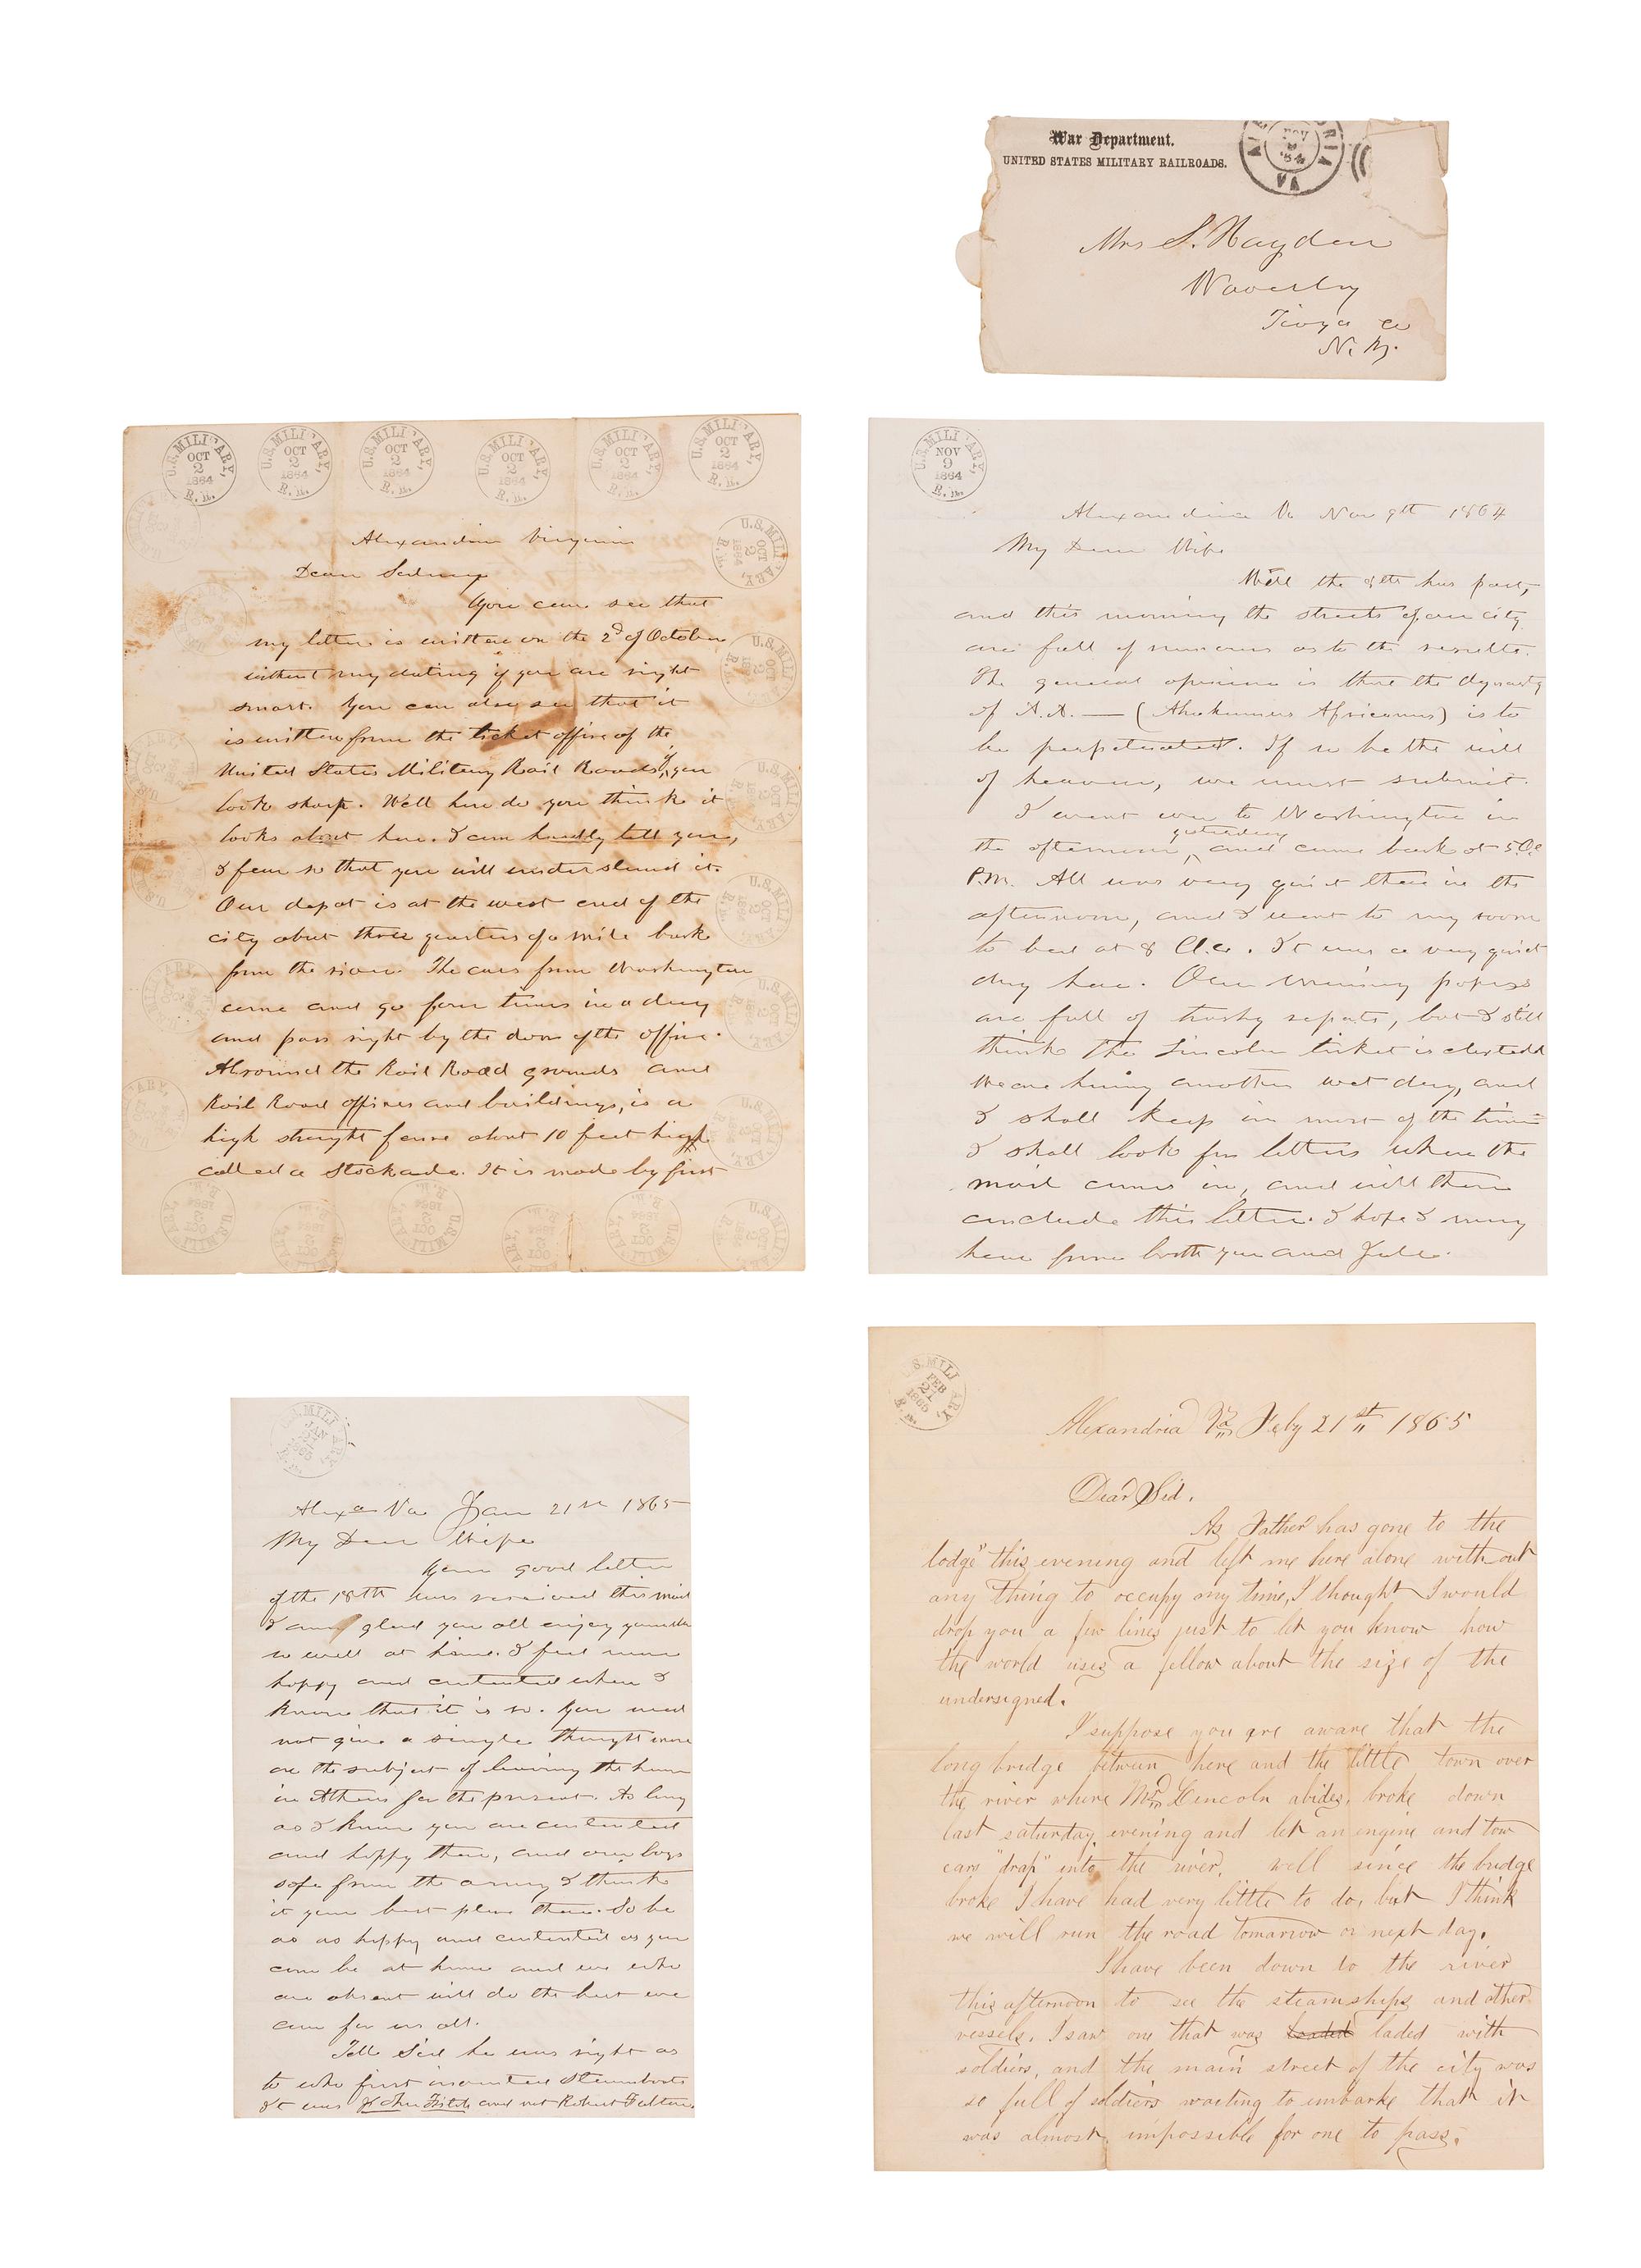 War Department.
UNITED STATES MILITARY RAILROADS.
NOV
VA
Mrs S. Hayden
Waverly
Tioga Co
N. Y.
U.S. MILITARY, R.R.
OCT
2
1864
Alexandria Virginia
Dear Sidney
You can see that
my letter is written on the 2d of October
without my dating if you are right
smart. You can also see that it
is written from the ticket office of the
United States Military Rail Roads, if you
look sharp. Well how do you think it
looks about here. I can hardly tell you,
I fear so that you will understand it.
Our depot is at the west end of the
city about three quarters of a mile back
from the river. The cars from Washington
come and go four times in a day
and pass right by the door of the office.
Around the Rail Road grounds and
Rail Road offices and buildings, is a
high straight fence about 10 feet high
called a Stockade. It is made by first
U.S. MILITARY, R.R.
NOV
9
1864
Alexandria Va Nov 9th 1864
My Dear Wife
Well the 8th has past,
and this morning the streets of our city
are full of rumors as to the results.
The general opinion is that the dynasty
of A.A. — (Abrahamus Africanus) is to
be perpetuated. If so be the will
of heaven, we must submit.
I went over to Washington in
the afternoon, yesterday and came back at 5 Oc
P.M. All was very quiet there in the
afternoon, and I went to my room
to bed at 8 O.c. It was a very quiet
day here. Our morning papers
are full of trashy reports, but I still
think the Lincoln ticket is elected
We are having another wet day, and
I shall keep in most of the time
I shall look for letters when the
mail comes in, and will then
conclude this letter. I hope I may
hear from both you and Jule.
U.S. MILITARY, R.R.
JAN
21
1865
Alexa Va Jan 21st 1865
My Dear Wife
Your good letter
of the 18th was received this mail
I am glad you all enjoy yourselves
so well at home. I feel more
happy and contented when I
know that it is so. You need
not give a single thought more
on the subject of leaving the home
in Athens for the present. As long
as I know you are contented
and happy there, and our boys
safe from the army I think
it your best place there. So be
as as happy and contented as you
can be at home and we who
are absent will do the best we
can for us all.
Tell Sid he was right as
to who first invented Steamboats
It was John Fitch and not Robert Fulton.
U.S. MILITARY, R.R.
FEB
21
1865
Alexandria Va Feby 21st 1865
Dear Sid.
As Father has gone to the
lodge" this evening and left me here alone without
any thing to occupy my time, I thought I would
drop you a few lines just to let you know how
the world uses a fellow about the size of the
undersigned.
I suppose you are aware that the
long bridge between here and the little town over
the river where Mr Lincoln abides, broke down
last saturday evening and let an engine and tow
cars "drop" into the river. well since the bridge
broke I have had very little to do, but I think
we will run the road tomarrow or next day.
I have been down to the river
this afternoon to see the steamships and other
vessels. I saw one that was loaded laded with
soldiers, and the main street of the city was
so full of soldiers waiting to imbarke that it
was almost impossible for one to pass.